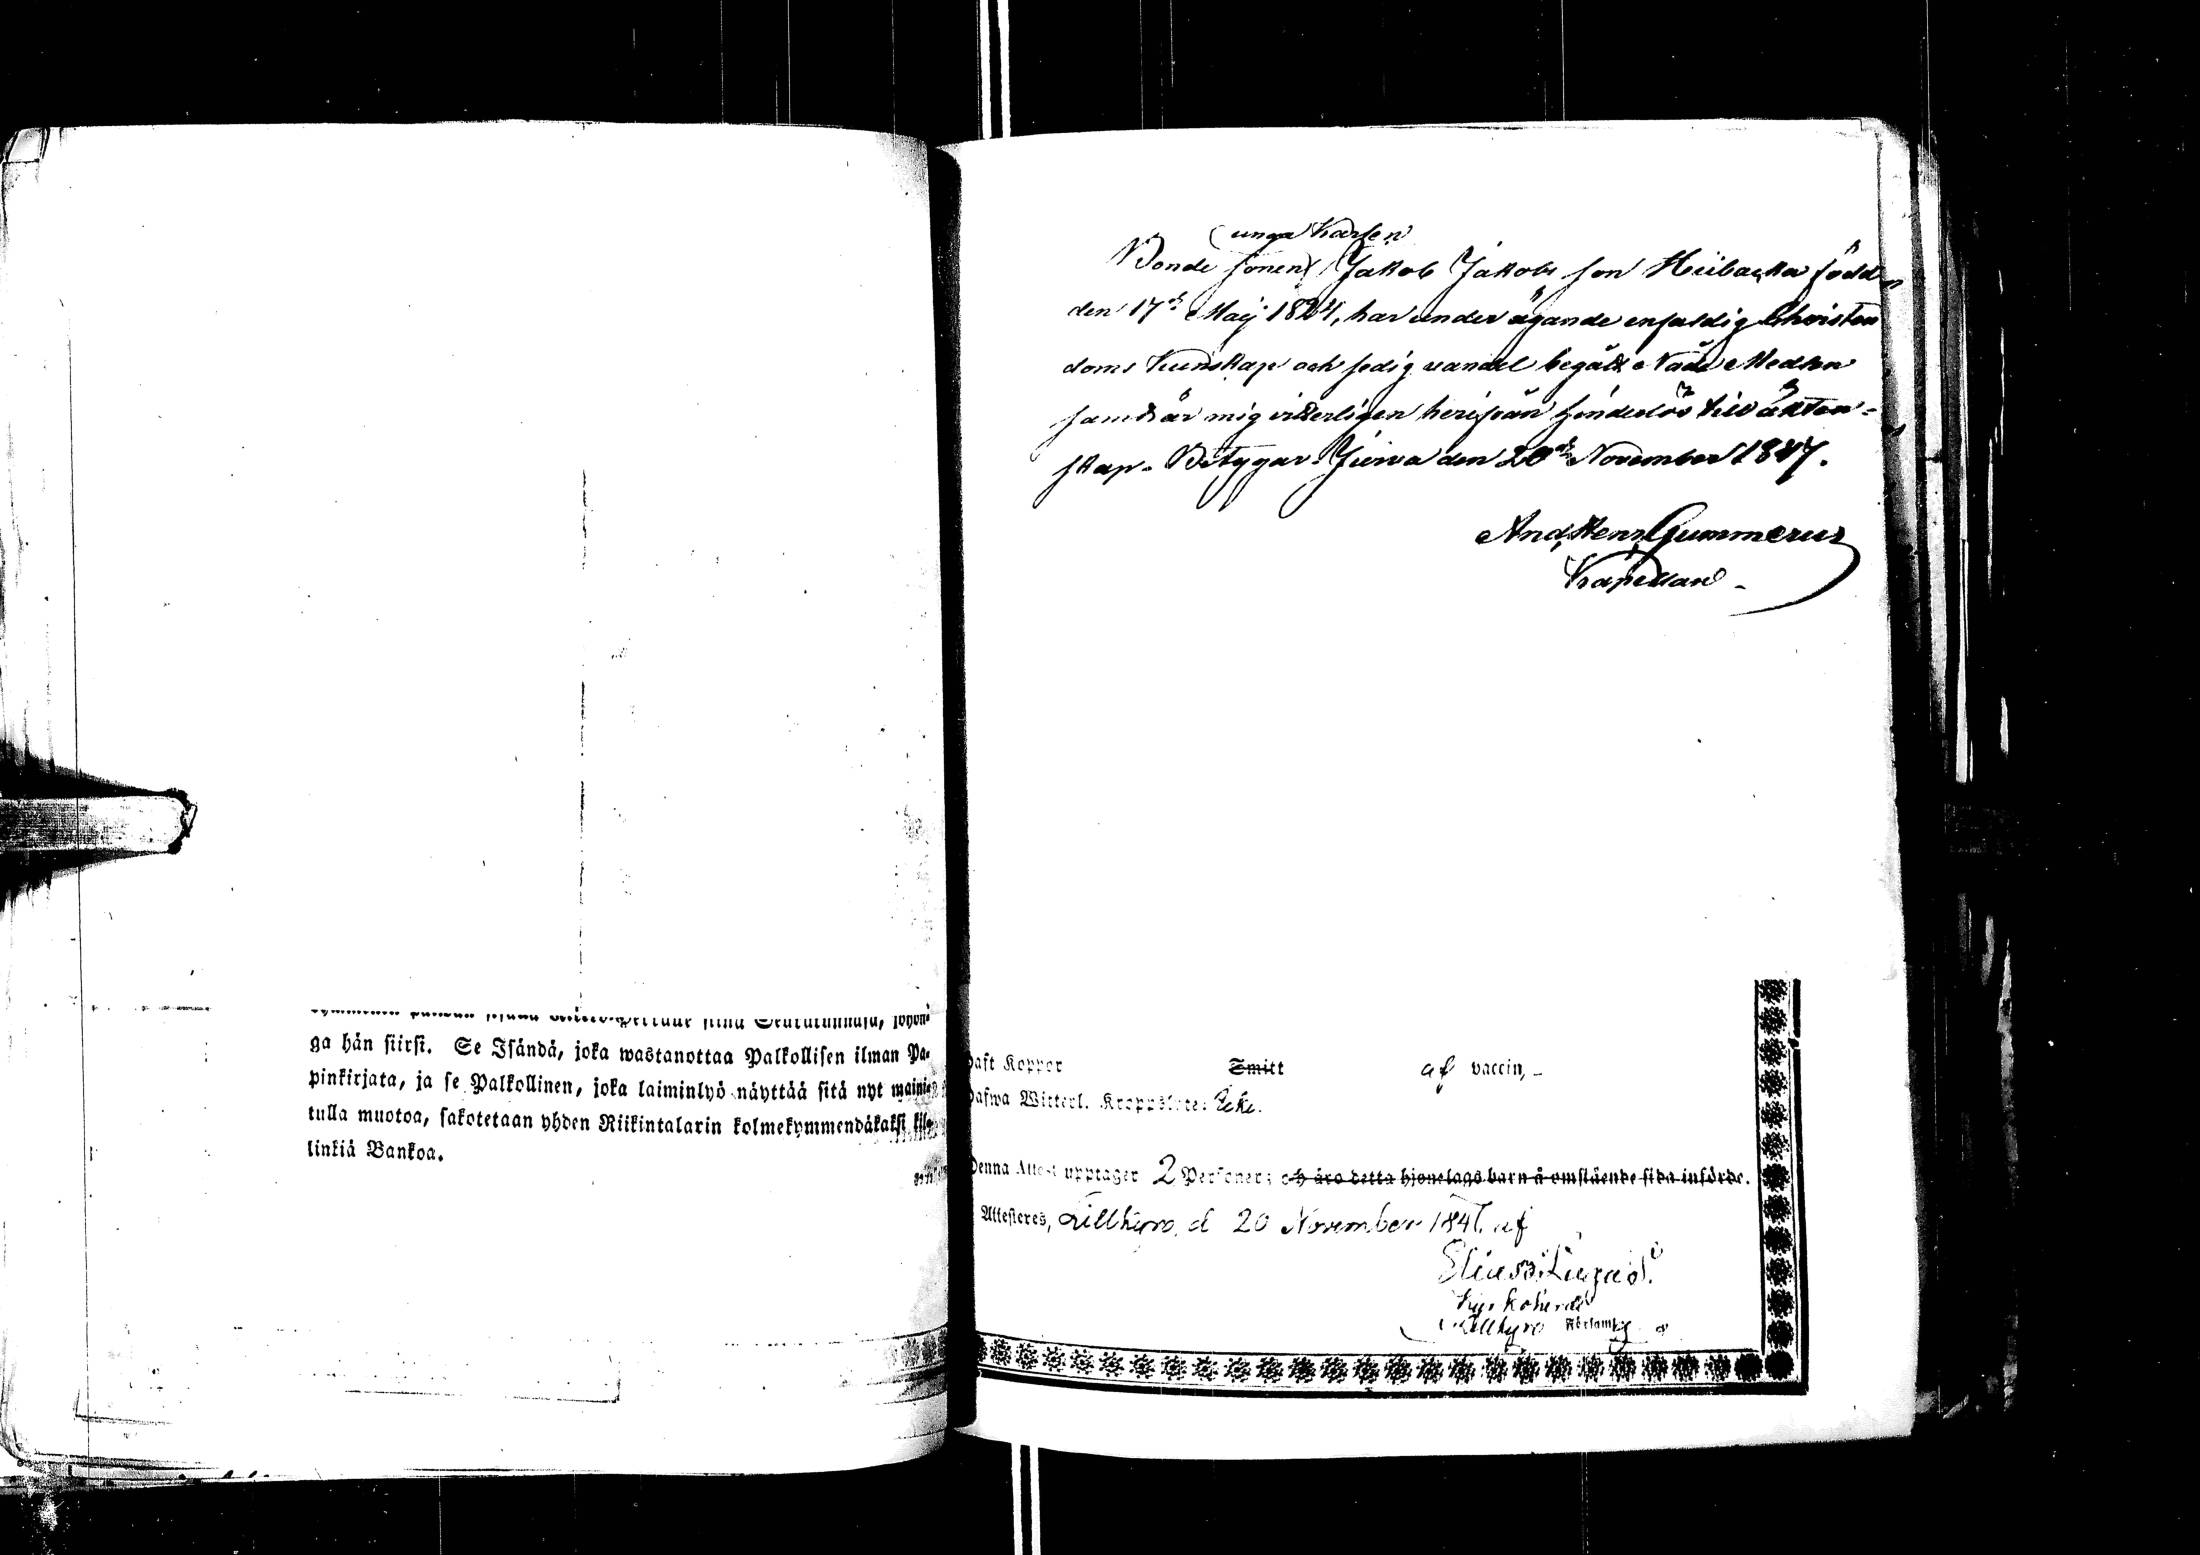 ga hän siirsi. Se Isändä, joka wastanottaa Palkollisen ilman Pa-
pinkirjata, ja se Palkollinen, joka laiminlyö näyttää sitä nyt maini-
tulla muotoa, sakotetaan yhden Riikintalarin kolmekymmendäkaksi kil-
linkiä Bankoa.
unga Karlen
Bonde sonen Jakob Jakobs son Hiibacka född
den 17d Maij 1824, har under ägande enfaldig Christen
doms Kunskap och sedig vandel begått Nåde Medlen
samt är mig vitterligen herifrån hinderlös till äkten-
skap. Betygar Jurva den 20de November 1847.
And. Henr. Gummerus
Kapellan
haft Koppor Smitt af vaccin,
hafwa Witterl. Kroppslyte: Icke.
Denna Attest upptager 2 Personer; och äro detta hjonelags barn å omstående sida införde.
Attesteres, Lillkyro, d 20 November 1847. af
Kyrkoherde
Lillkyro Församlg